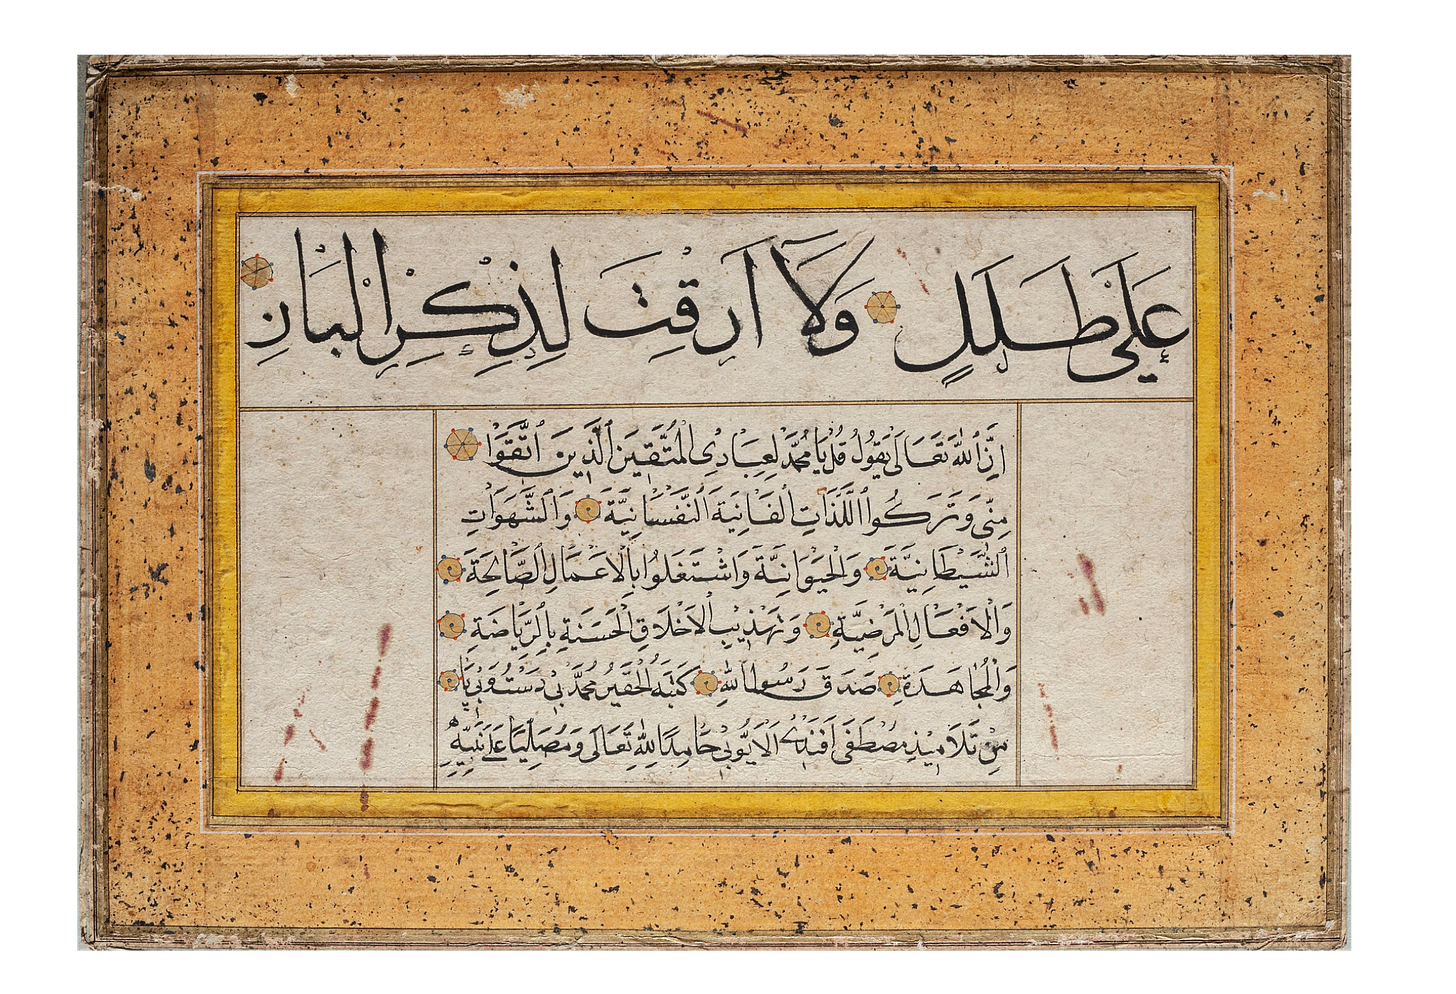 عَلَى طَلَلٍ وَلَا أَرِقْتَ لِذِكْرِ الْبَانِ
إِنَّ اللّٰهَ تَعَالَى يَقُولُ قُلْ يَا مُحَمَّدْ لِعِبَادِى الْمُتَّقِينَ الَّذِينَ اتَّقَوْا
مِنِّى وَتَرَكُوا اللَّذَّاتِ الْفَانِيَةَ النَّفْسَانِيَّةَ وَالشَّهَوَاتِ
الشَّيْطَانِيَّةَ وَالْحَيَوَانِيَّةَ وَاشْتَغَلُوا بِالْأَعْمَالِ الصَّالِحَةِ
وَالْأَفْعَالِ الْمَرْضِيَّةِ وَتَهْذِيبِ الْأَخْلَاقِ الْحَسَنَةِ بِالرِّيَاضَةِ
وَالْمُجَاهَدَةِ صَدَقَ رَسُولُ اللّٰهِ كَتَبَهُ الْحَقِيرُ مُحَمَّدْ
مِنْ تَلَامِيذِ مُصْطَفَى أَفَنْدِى الْأَيُّوبِى حَامِدًا لِلّٰهِ تَعَالَى وَمُصَلِّيًا عَلَى نَبِيِّهِ